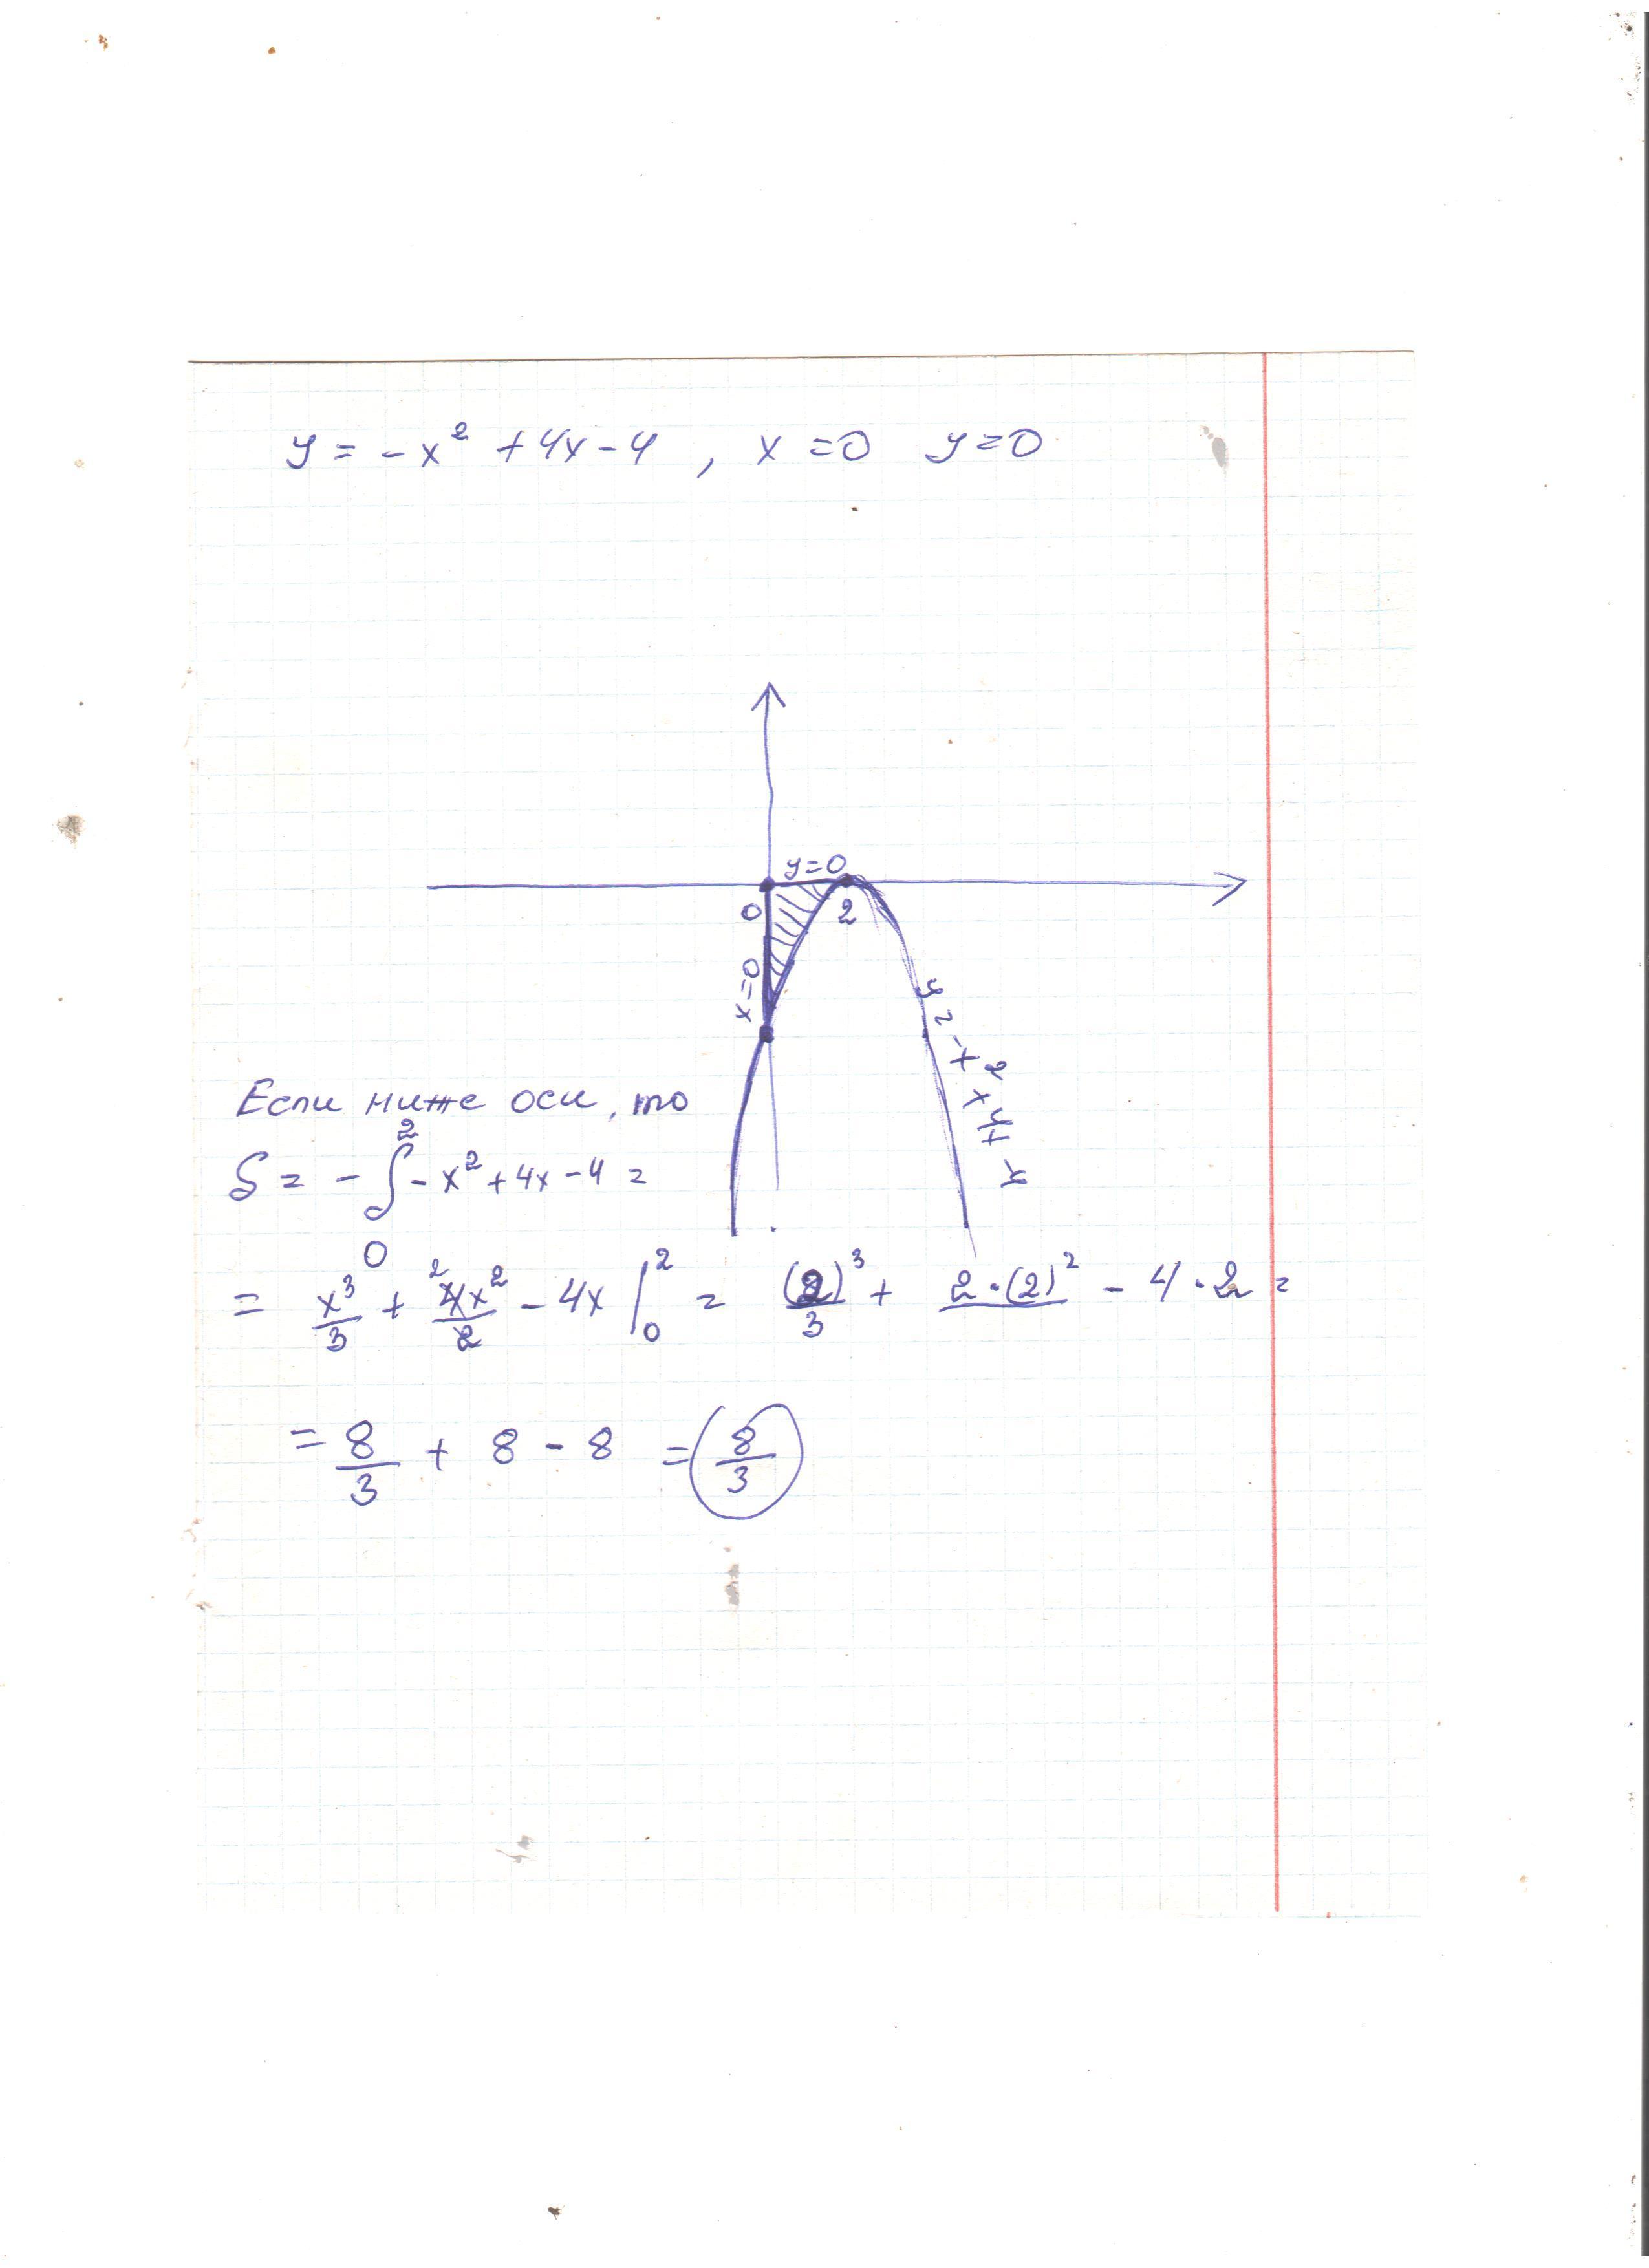 y = -x² + 4x - 4 , x = 0 y = 0
y=0
0
2
x=0
y = -x² + 4x - 4
Если ниже оси, то
S = - ∫₀² -x² + 4x - 4 =
= x³/3 + 4x²/2 - 4x |₀² = (2)³/3 + 2·(2)² - 4·2 =
= 8/3 + 8 - 8 = 8/3